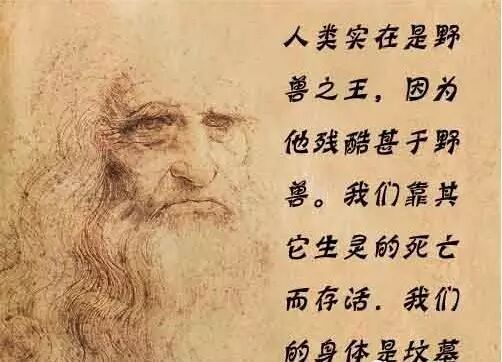 人类实在是野
兽之王，因为
他残酷甚于野
兽。我们靠其
它生灵的死亡
而存活．我们
的身体是坟墓